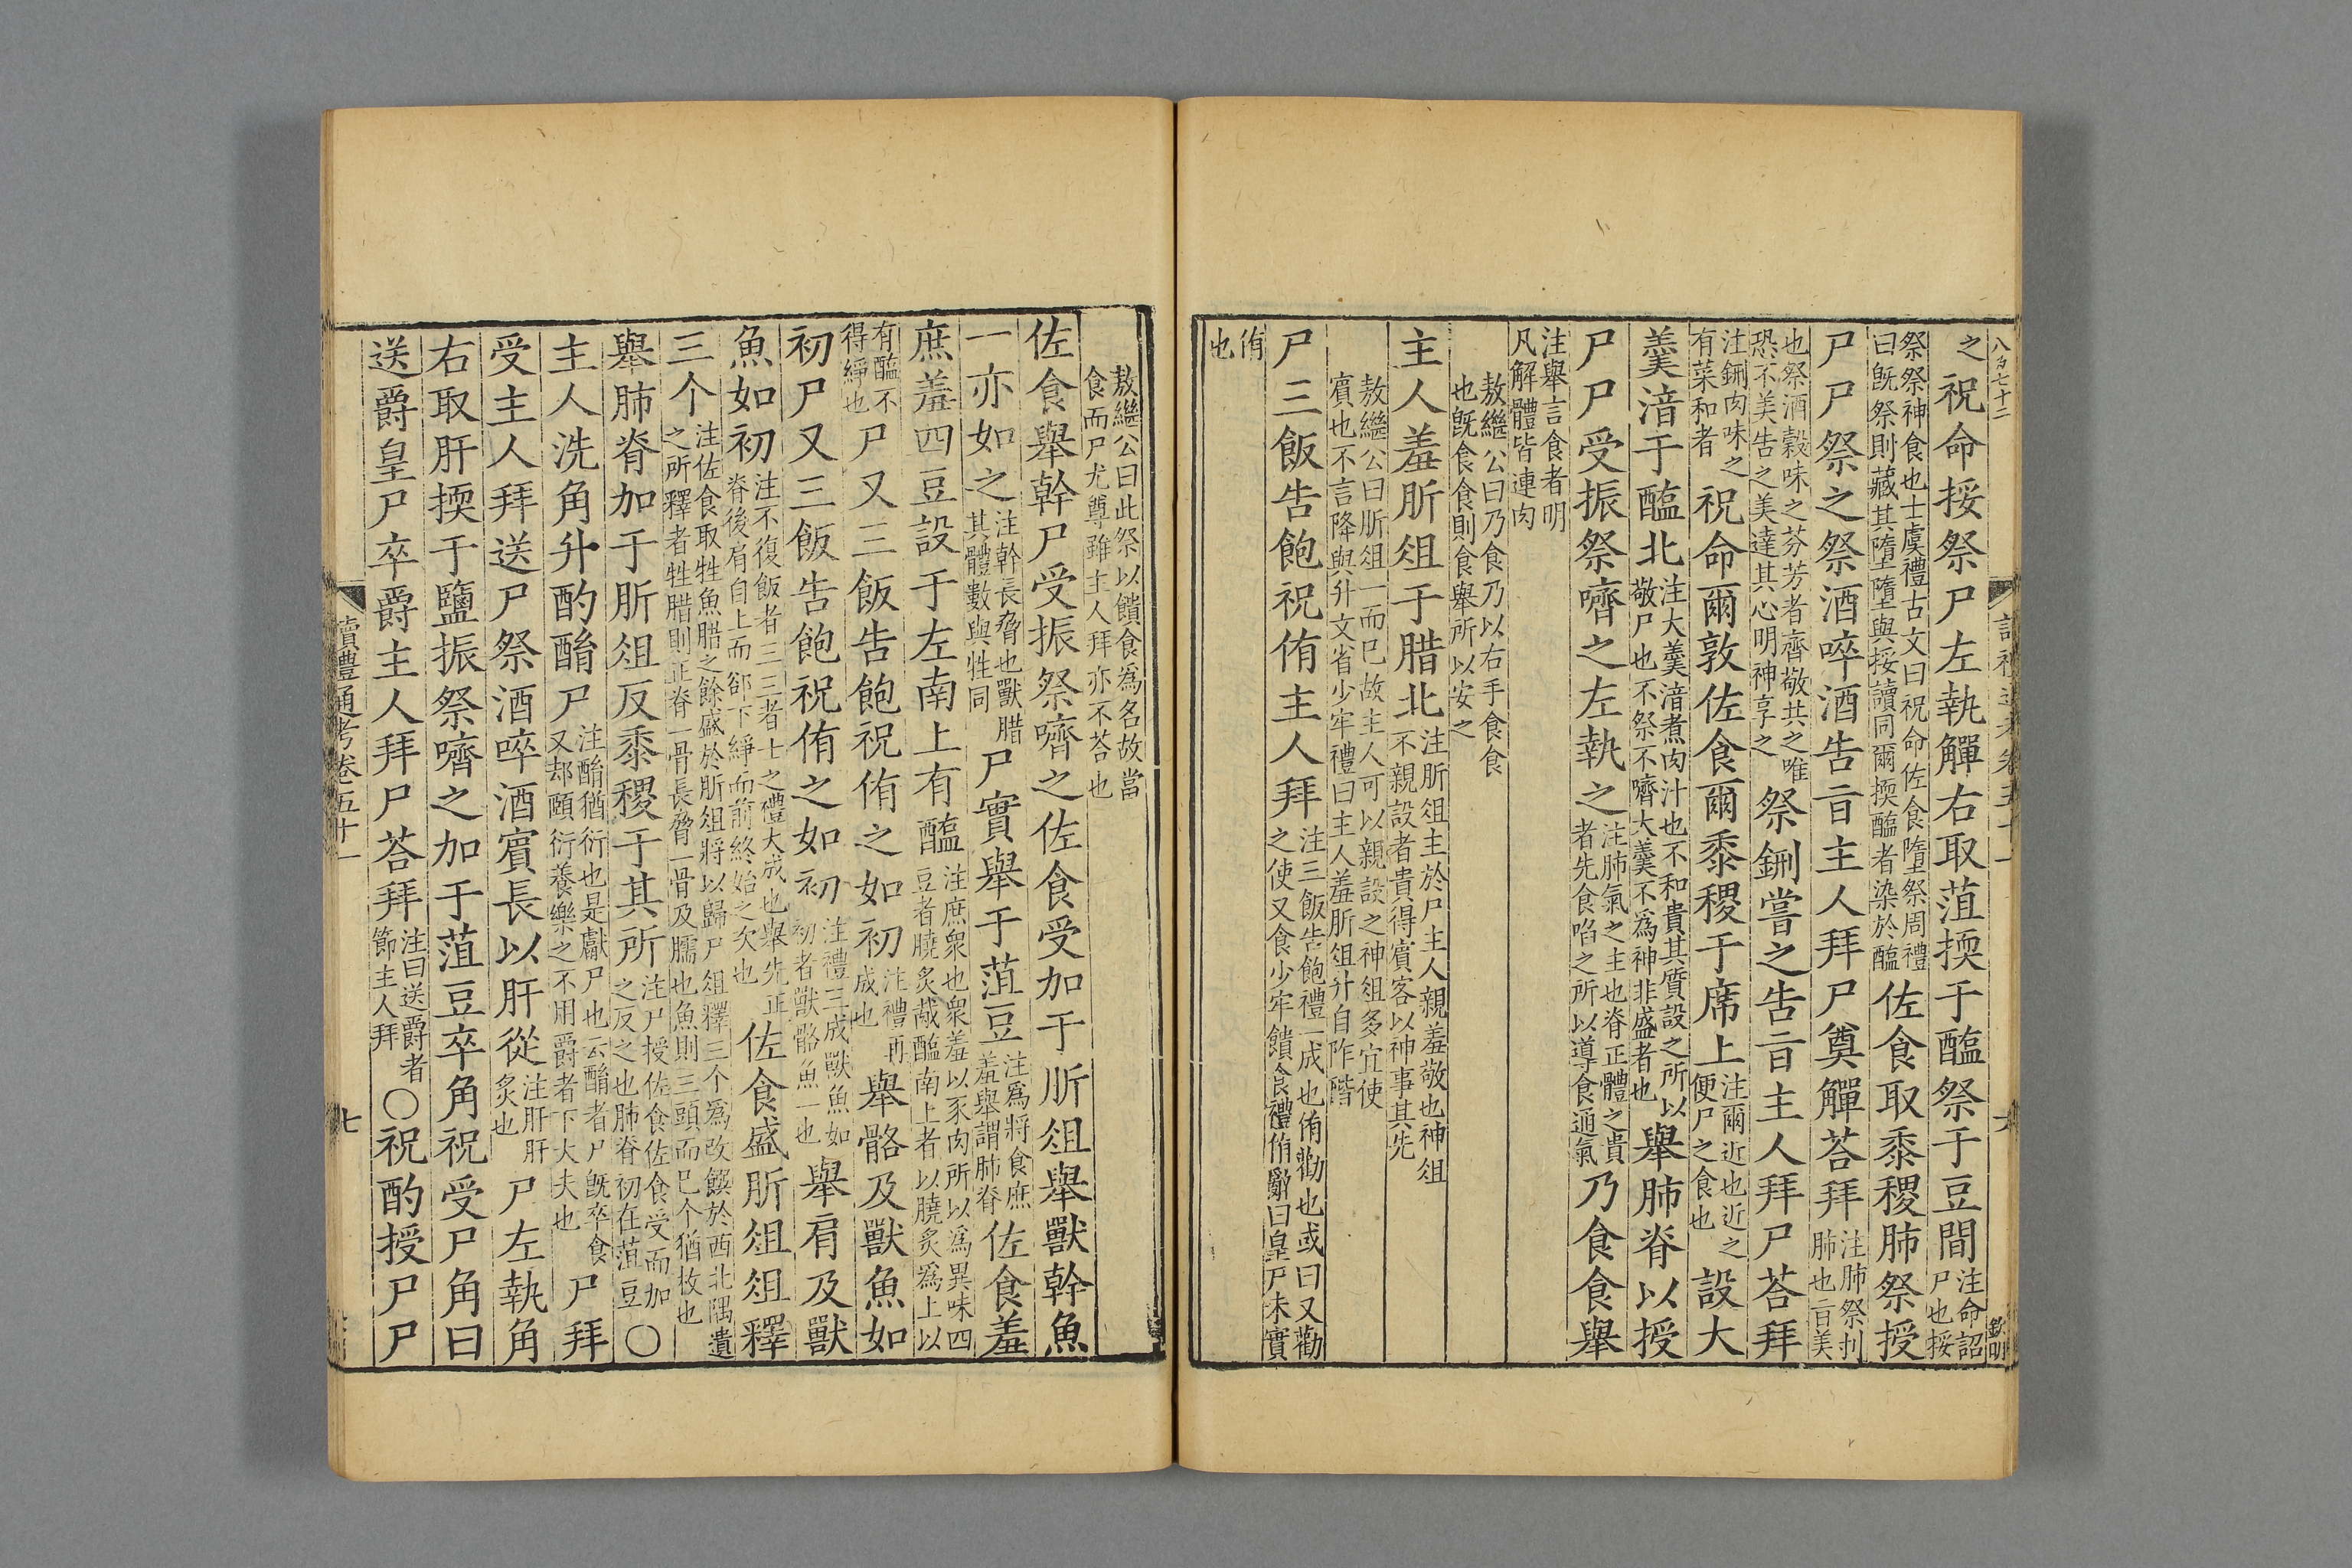 八百七十二
讀禮通考卷五十一
六
之祝命挼祭尸左執觶右取菹㨎于醢祭于豆間注命詔
尸也挼
祭祭神食也士虞禮古文曰祝命佐食墮祭周禮
曰旣祭則藏其墮墮與挼讀同爾㨎醢者染於醢佐食取黍稷肺祭授
尸尸祭之祭酒啐酒告旨主人拜尸奠觶荅拜注肺祭刌
肺也旨美
也祭酒穀味之芬芳者齊敬共之唯
恐不美告之美達其心明神享之祭鉶嘗之告旨主人拜尸荅拜
注鉶肉味之
有菜和者祝命爾敦佐食爾黍稷于席上注爾近也近之
便尸之食也設大
羹湇于醢北注大羹湇煮肉汁也不和貴其質設之所以
敬尸也不祭不嚌大羹不爲神非盛者也舉肺脊以授
尸尸受振祭嚌之左執之注肺氣之主也脊正體之貴
者先食啗之所以導食通氣乃食食舉
注舉言食者明
凡解體皆連肉
敖繼公曰乃食乃以右手食食
也旣食食則食舉所以安之
主人羞肵俎于腊北注肵俎主於尸主人親羞敬也神俎
不親設者貴得賓客以神事其先
敖繼公曰肵俎一而巳故主人可以親設之神俎多宜使
賓也不言降與升文省少牢禮曰主人羞肵俎升自阼階
尸三飯告飽祝侑主人拜注三飯告飽禮一成也侑勸也或曰又勸
之使又食少牢饋食禮侑辭曰皇尸未實
侑
也
敖繼公曰此祭以饋食爲名故當
食而尸尤尊雖主人拜亦不荅也
佐食舉幹尸受振祭嚌之佐食受加于肵俎舉獸幹魚
一亦如之注幹長脅也獸腊
其體數與牲同尸實舉于菹豆注爲將食庶
羞舉謂肺脊佐食羞
庶羞四豆設于左南上有醢注庶衆也衆羞以豕肉所以爲異味四
豆者膮炙胾醢南上者以膮炙爲上以
有醢不
得綪也尸又三飯告飽祝侑之如初注禮再
成也舉骼及獸魚如
初尸又三飯告飽祝侑之如初注禮三成獸魚如
初者獸骼魚一也舉肩及獸
魚如初注不復飯者三三者士之禮大成也舉先正
脊後肩自上而卻下綪而前終始之次也佐食盛肵俎俎釋
三个注佐食取牲魚腊之餘盛於肵俎將以歸尸俎釋三个爲改饌於西北隅遺
之所釋者牲腊則正脊一骨長脅一骨及臑也魚則三頭而巳个猶枚也
舉肺脊加于肵俎反黍稷于其所注尸授佐食佐食受而加
之反之也肺脊初在菹豆〇
主人洗角升酌酳尸注酳猶衍也是獻尸也云酳者尸旣卒食
又却頤衍養樂之不用爵者下大夫也尸拜
受主人拜送尸祭酒啐酒賓長以肝從注肝肝
炙也尸左執角
右取肝㨎于鹽振祭嚌之加于菹豆卒角祝受尸角曰
送爵皇尸卒爵主人拜尸荅拜注曰送爵者
節主人拜〇祝酌授尸尸
讀禮通考卷五十一
七